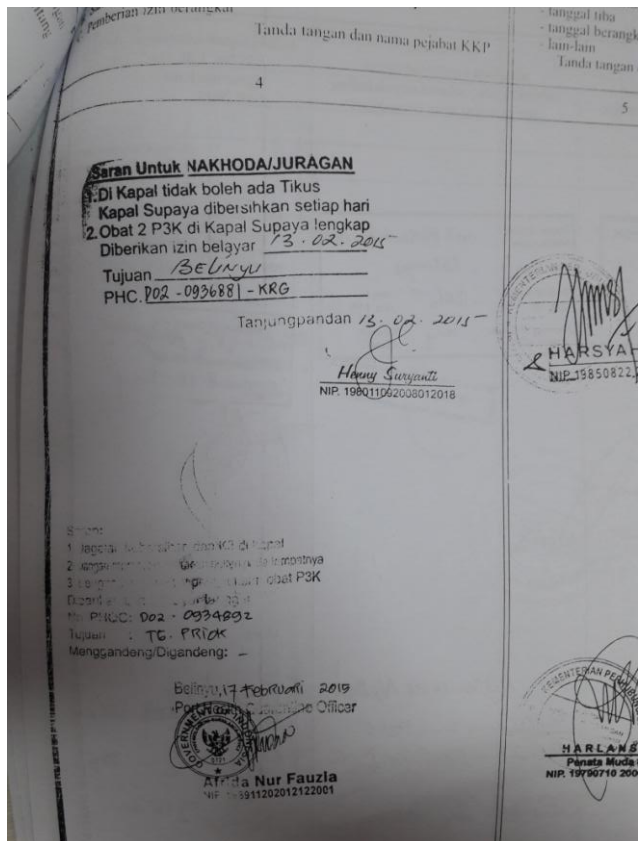 Pemberian izin berangkat
Tanda tangan dan nama pejabat KKP
- tanggal tiba
- tanggal berangk
- lain-lain
Tanda tangan
4
5
Saran Untuk NAKHODA/JURAGAN
1. Di Kapal tidak boleh ada Tikus
Kapal Supaya dibersihkan setiap hari
2. Obat 2 P3K di Kapal Supaya lengkap
Diberikan izin belayar 13.02.2015
Tujuan BELINYU
PHC. P02-0936881-KRG
Tanjungpandan 13.02.2015
Henny Suryanti
NIP. 198011092008012018
HARSYAH
NIP 19850822
Saran:
1
di kapal
2
3
obat P3K
No PHQC: D02-0934892
Tujuan : TG. PRIOK
Menggandeng/Digandeng: -
Belinyu, 17 Februari 2015
Port Health Quarantine Officer
GOVERNMENT
Afrida Nur Fauzia
NIP. 911202012122001
KEMENTERIAN
HARLANS
Penata Muda
NIP. 19790710 200